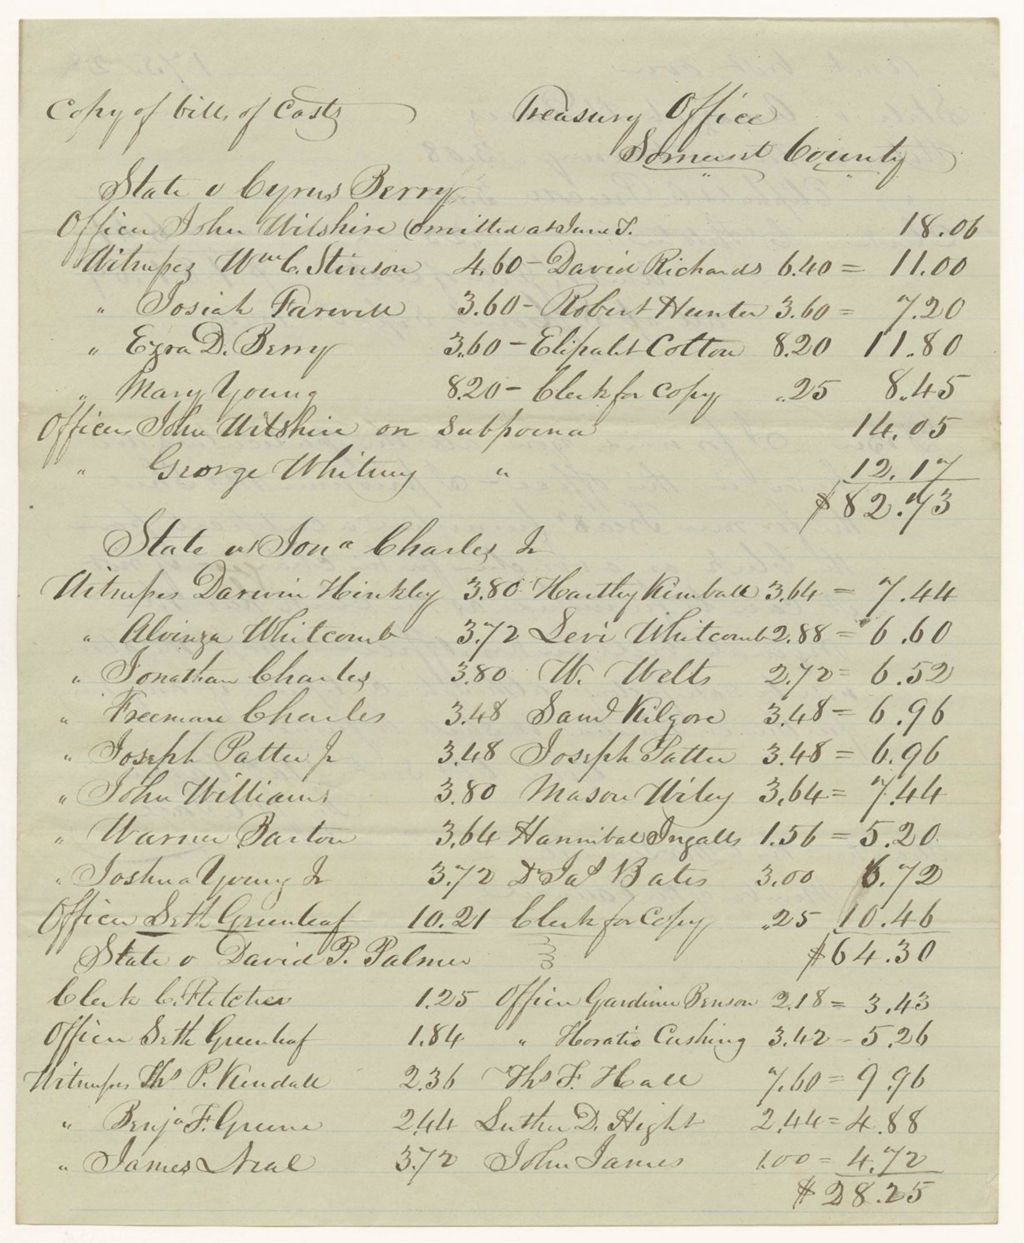 Copy of bills of Costs
Treasury Office
Somerset County
State v Cyrus Berry
Officer John Wilshire Comitted at June T. 18.06
Witnesses Wm C. Stinson 4.60 - David Richards 6.40 = 11.00
" Josiah Farwell 3.60 - Robert Hunter 3.60 = 7.20
" Ezra D. Berry 3.60 - Eliphalet Colton 8.20 11.80
" Mary Young 8.20 - Clerk for copy .25 8.45
Officer John Wilshire on Subpoena 14.05
" George Whitney " 12.17
$82.73
State vs Jona Charles Jr
Witnesses Darwin Hinkley 3.80 Hartley Kimball 3.64 = 7.44
" Alvinza Whitcomb 3.72 Levi Whitcomb 2.88 = 6.60
" Jonathan Charles 3.80 W. Welts 2.72 = 6.52
" Freeman Charles 3.48 Saml Kilgore 3.48 = 6.96
" Joseph Patten Jr 3.48 Joseph Patten 3.48 = 6.96
" John Williams 3.80 Mason Wiley 3.64 = 7.44
" Warner Barton 3.64 Hannibal Ingalls 1.56 = 5.20
" Joshua Young Jr 3.72 Dr Jas Bates 3.00 6.72
Officer Seth Greenleaf 10.21 Clerk for Copy .25 10.46
$64.30
State v David P. Palmer
Clerk C. Fletcher 1.25 Officer Gardiner Benson 2.18 = 3.43
Officer Seth Greenleaf 1.84 " Horatio Cushing 3.42 - 5.26
Witnesses Ths P. Kendall 2.36 Ths F. Hall 7.60 = 9.96
" Benja F. Greene 2.44 Luther D. Hight 2.44 = 4.88
" James Neal 3.72 John James 1.00 = 4.72
$28.25